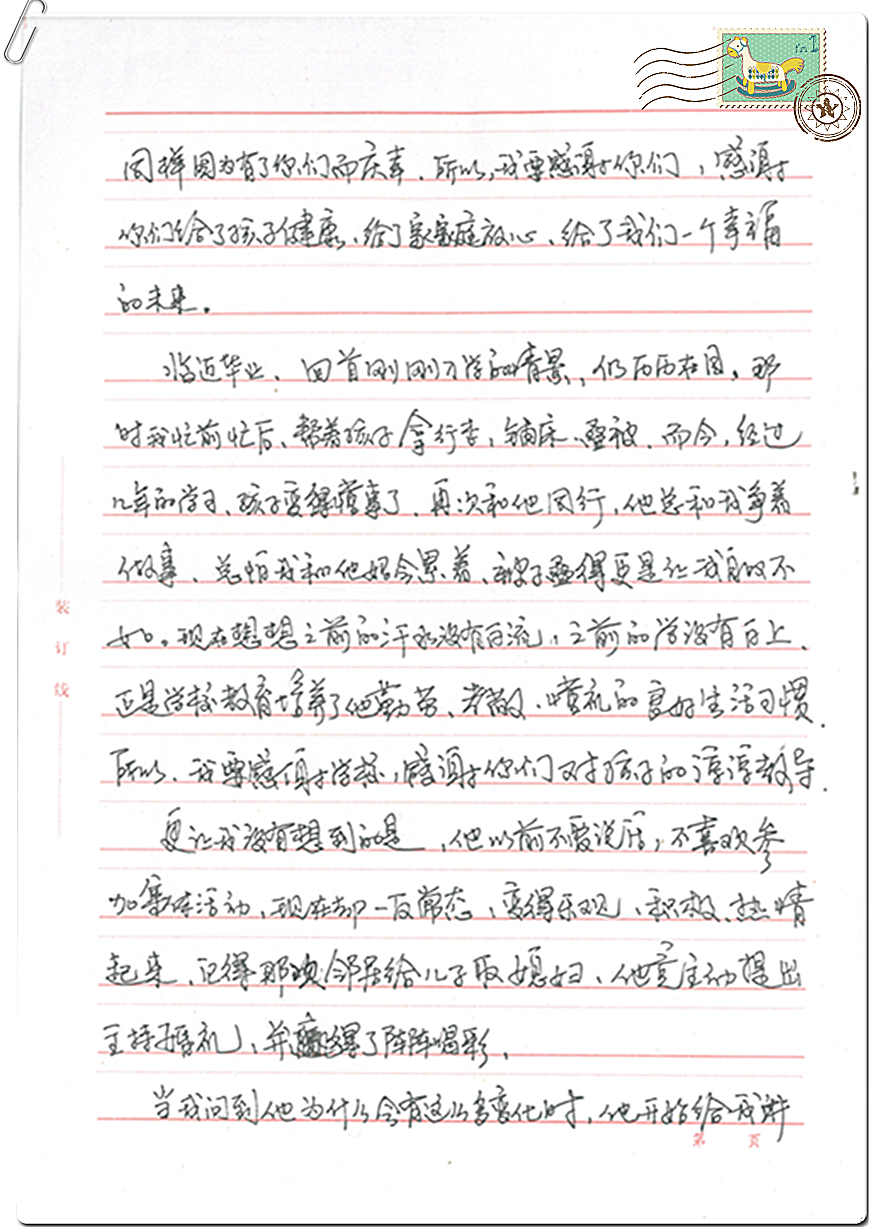 同样因为有了你们而庆幸.所以,我要感谢你们,感谢
你们给了孩子健康、给了家庭放心、给了我们一个幸福
的未来。
临近毕业、回首刚刚入学的情景,仍历历在目。那
时我忙前忙后、帮着孩子拿行李,铺床、叠被.而今,经过
几年的学习、孩子变得懂事了.再次和他同行,他总和我争着
做事、总怕我和他妈会累着、被子叠得更是让我自叹不
如。现在想想之前的汗水没有白流,之前的学没有白上、
正是学校教育培养了他勤劳、孝敬、懂礼的良好生活习惯.
所以、我要感谢学校,感谢你们对孩子的谆谆教导.
更让我没有想到的是,他以前不爱说话,不喜欢参
加集体活动、现在却一反常态,变得乐观、积极、热情
起来、记得那次邻居给儿子取媳妇、他竟主动提出
主持婚礼、并赢得了阵阵喝彩。
当我问到他为什么会有这么多变化时,他开始给我讲
装订线
第 页